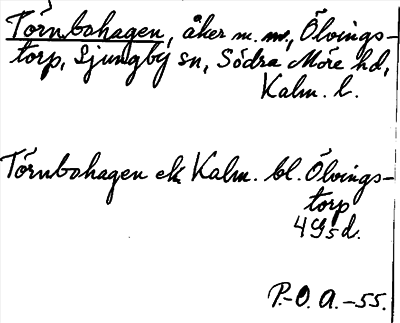 Törnbohagen, åker m.m., Ölvings-
torp, Ljungby sn, Södra Möre hd,
Kalm. l.
Törnbohagen ek Kalm. bl. Ölvings-
torp
4 G5d.
P.-O. A. -55.